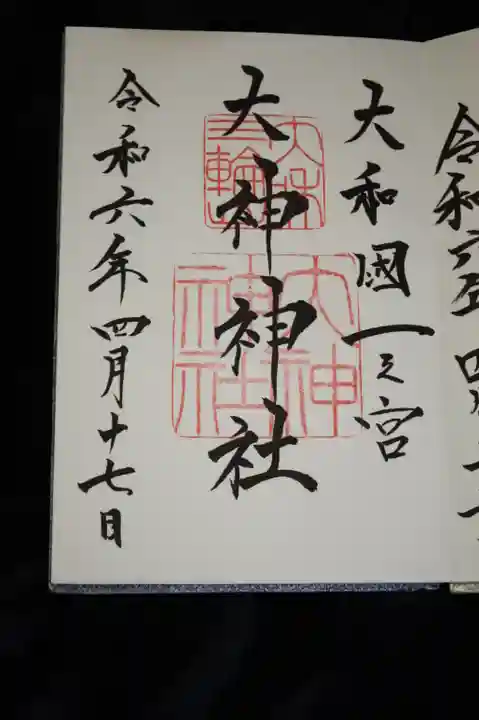 令和六年四月十
大和國一之宮
大神神社
大和
三輪
大神
神社
令和六年四月十七日